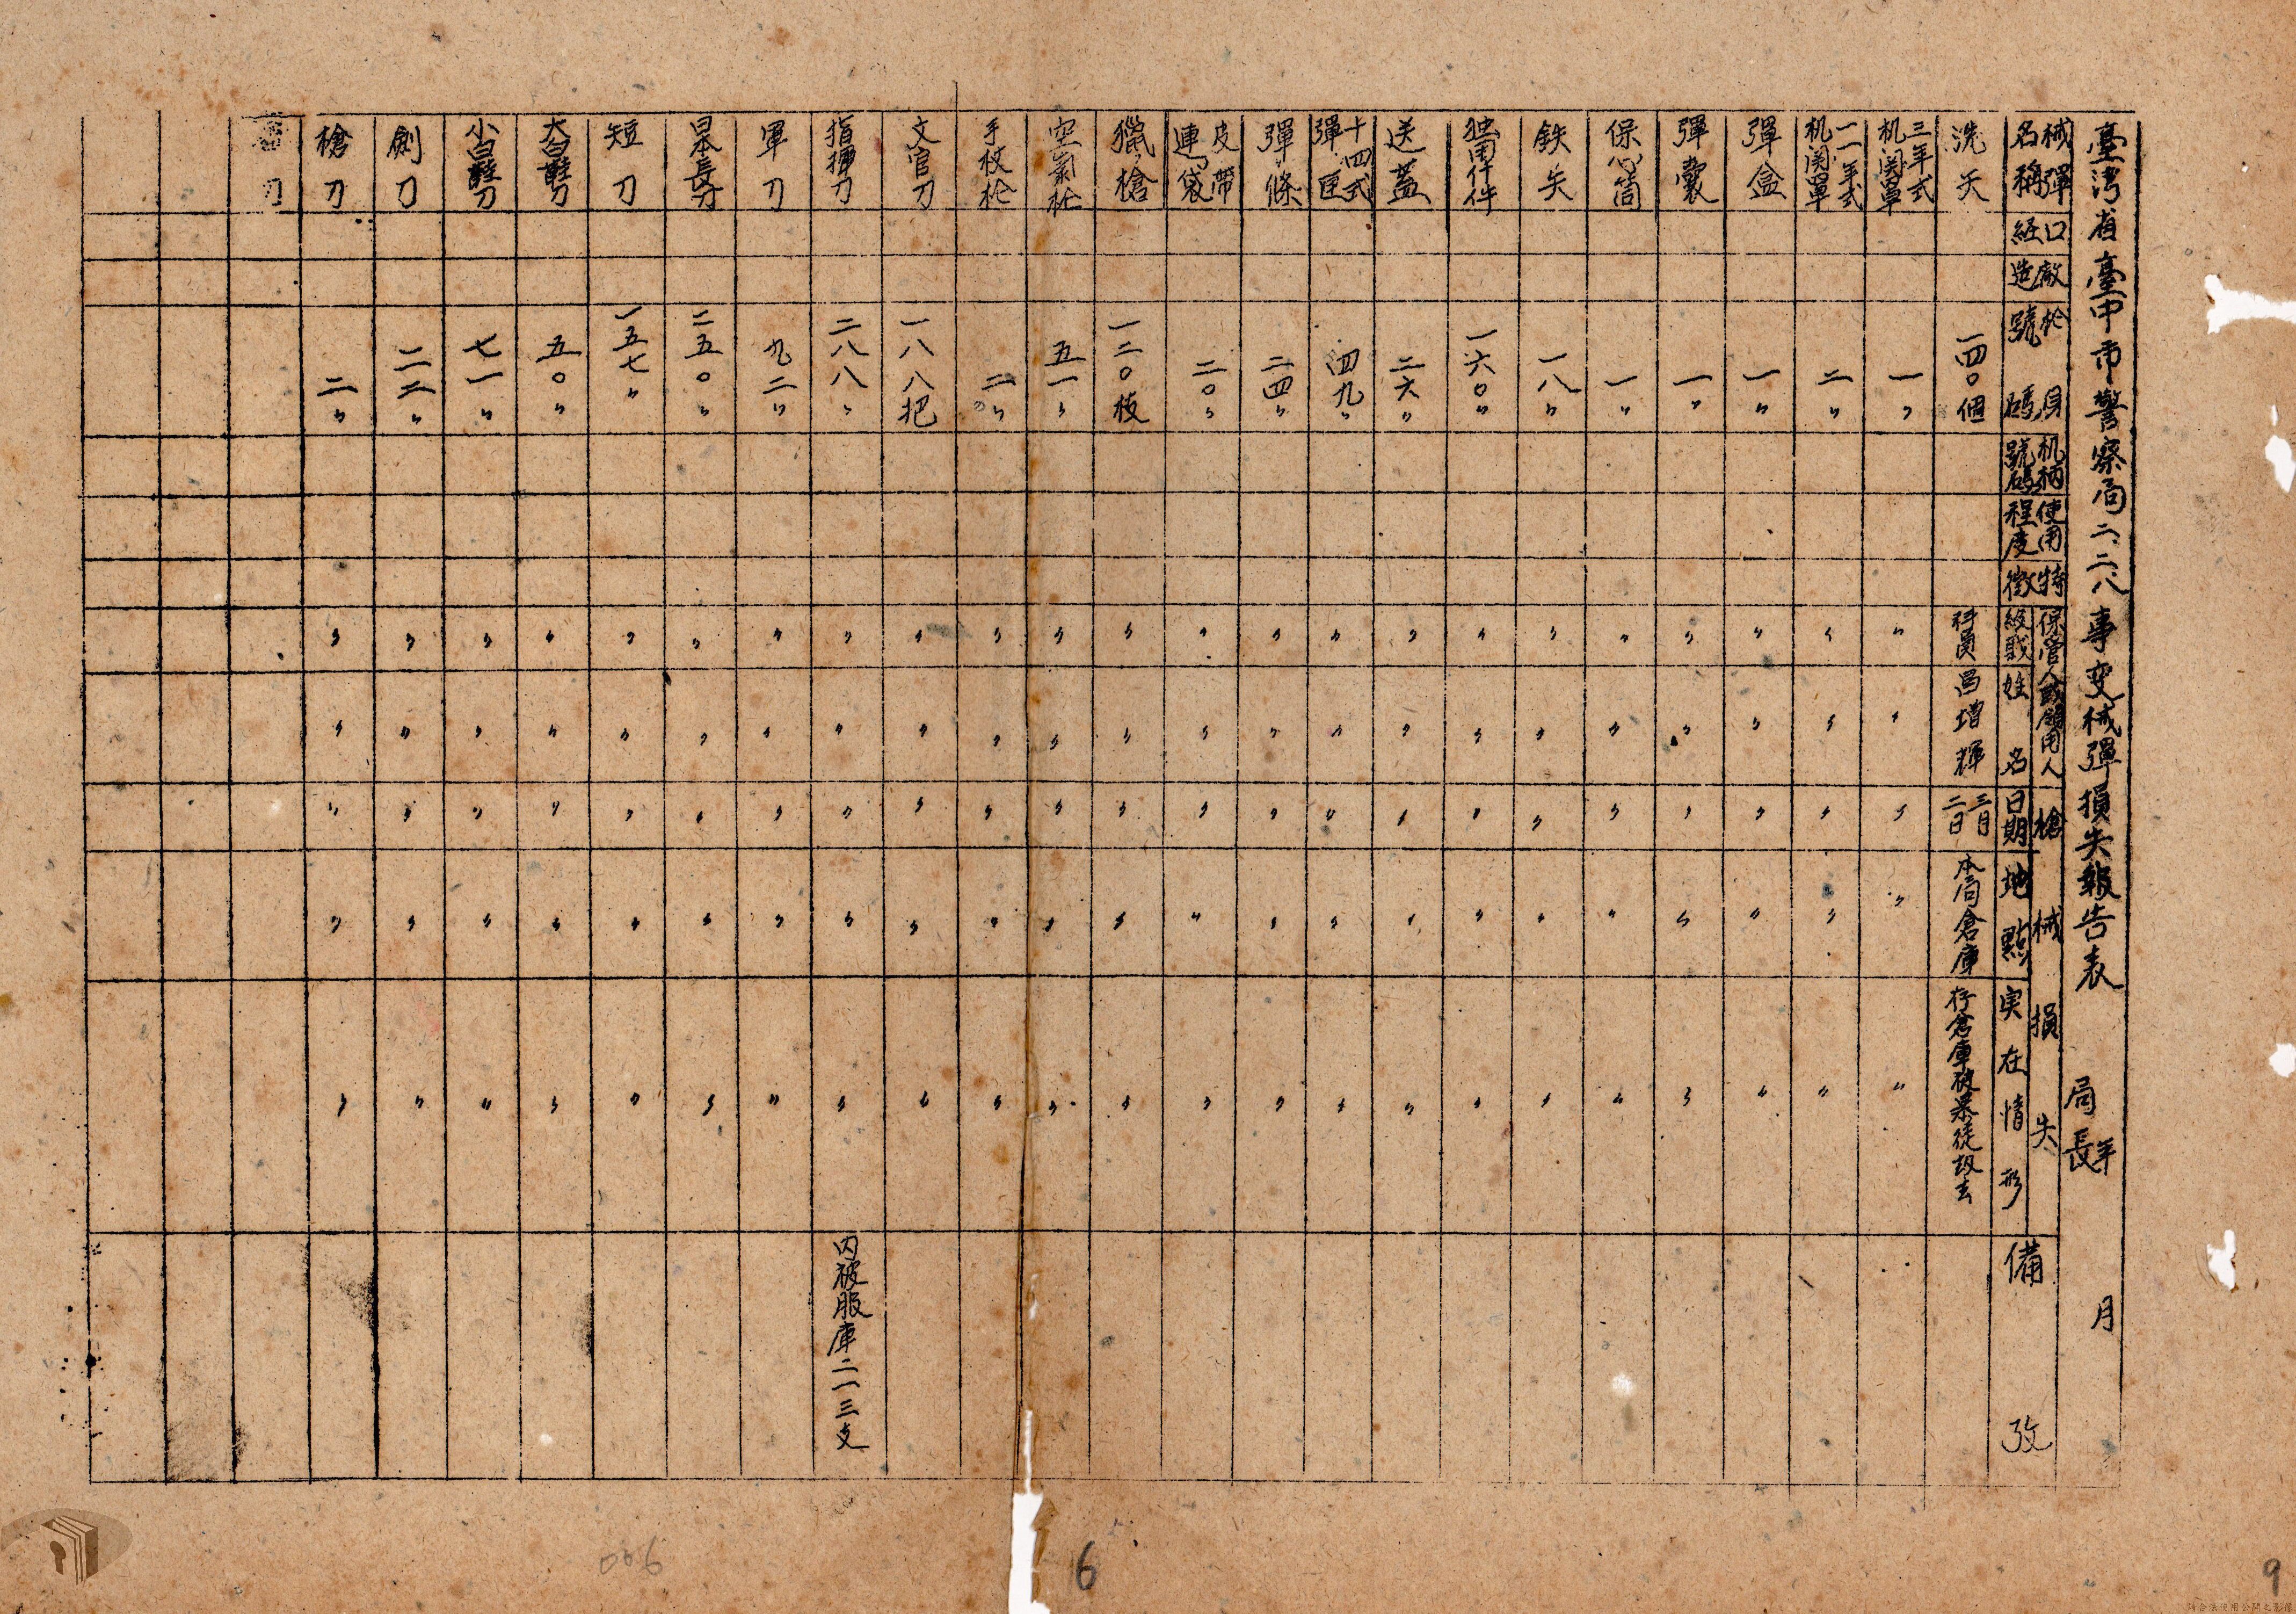 臺灣省臺中市警察局二、二、八事变械彈損失報告表
局長
年 月
械彈名稱 口経 廠造 枪身號碼 机柄號碼 使用程度 特徵 保管人或領用人 級戝 姓名 槍械損失 日期 地點 実在情形 備攷
洗矢 一四〇個 科員 呂增輝 三月二日 本局倉庫 存倉庫被暴徒刼去
三年式机関單 一〃 〃 〃 〃 〃 〃
一一年式机関單 二〃 〃 〃 〃 〃 〃
彈盒 一〃 〃 〃 〃 〃 〃
彈囊 一〃 〃 〃 〃 〃 〃
保心筒 一〃 〃 〃 〃 〃 〃
鉄矢 一八〃 〃 〃 〃 〃 〃
独用仟件 一六〇〃 〃 〃 〃 〃 〃
送蓋 二六〃 〃 〃 〃 〃 〃
十四式彈匣 四九〃 〃 〃 〃 〃 〃
彈條 二四〃 〃 〃 〃 〃 〃
皮帶連袋 二〇〃 〃 〃 〃 〃 〃
獵槍 一二〇枝 〃 〃 〃 〃 〃
空氣枪 五一〃 〃 〃 〃 〃 〃
手杖枪 二〃 〃 〃 〃 〃 〃
文官刀 一八八把 〃 〃 〃 〃 〃
指揮刀 二八八〃 〃 〃 〃 〃 〃 内被服庫二一三支
軍刀 九二〃 〃 〃 〃 〃 〃
日本長刀 二五〇〃 〃 〃 〃 〃 〃
短刀 一五七〃 〃 〃 〃 〃 〃
大白鞋刀 五〇〃 〃 〃 〃 〃 〃
小白鞋刀 七一〃 〃 〃 〃 〃 〃
劍刀 二二〃 〃 〃 〃 〃 〃
槍刀 二〃 〃 〃 〃 〃 〃
刀
006
6
9
請合法使用公開之影像